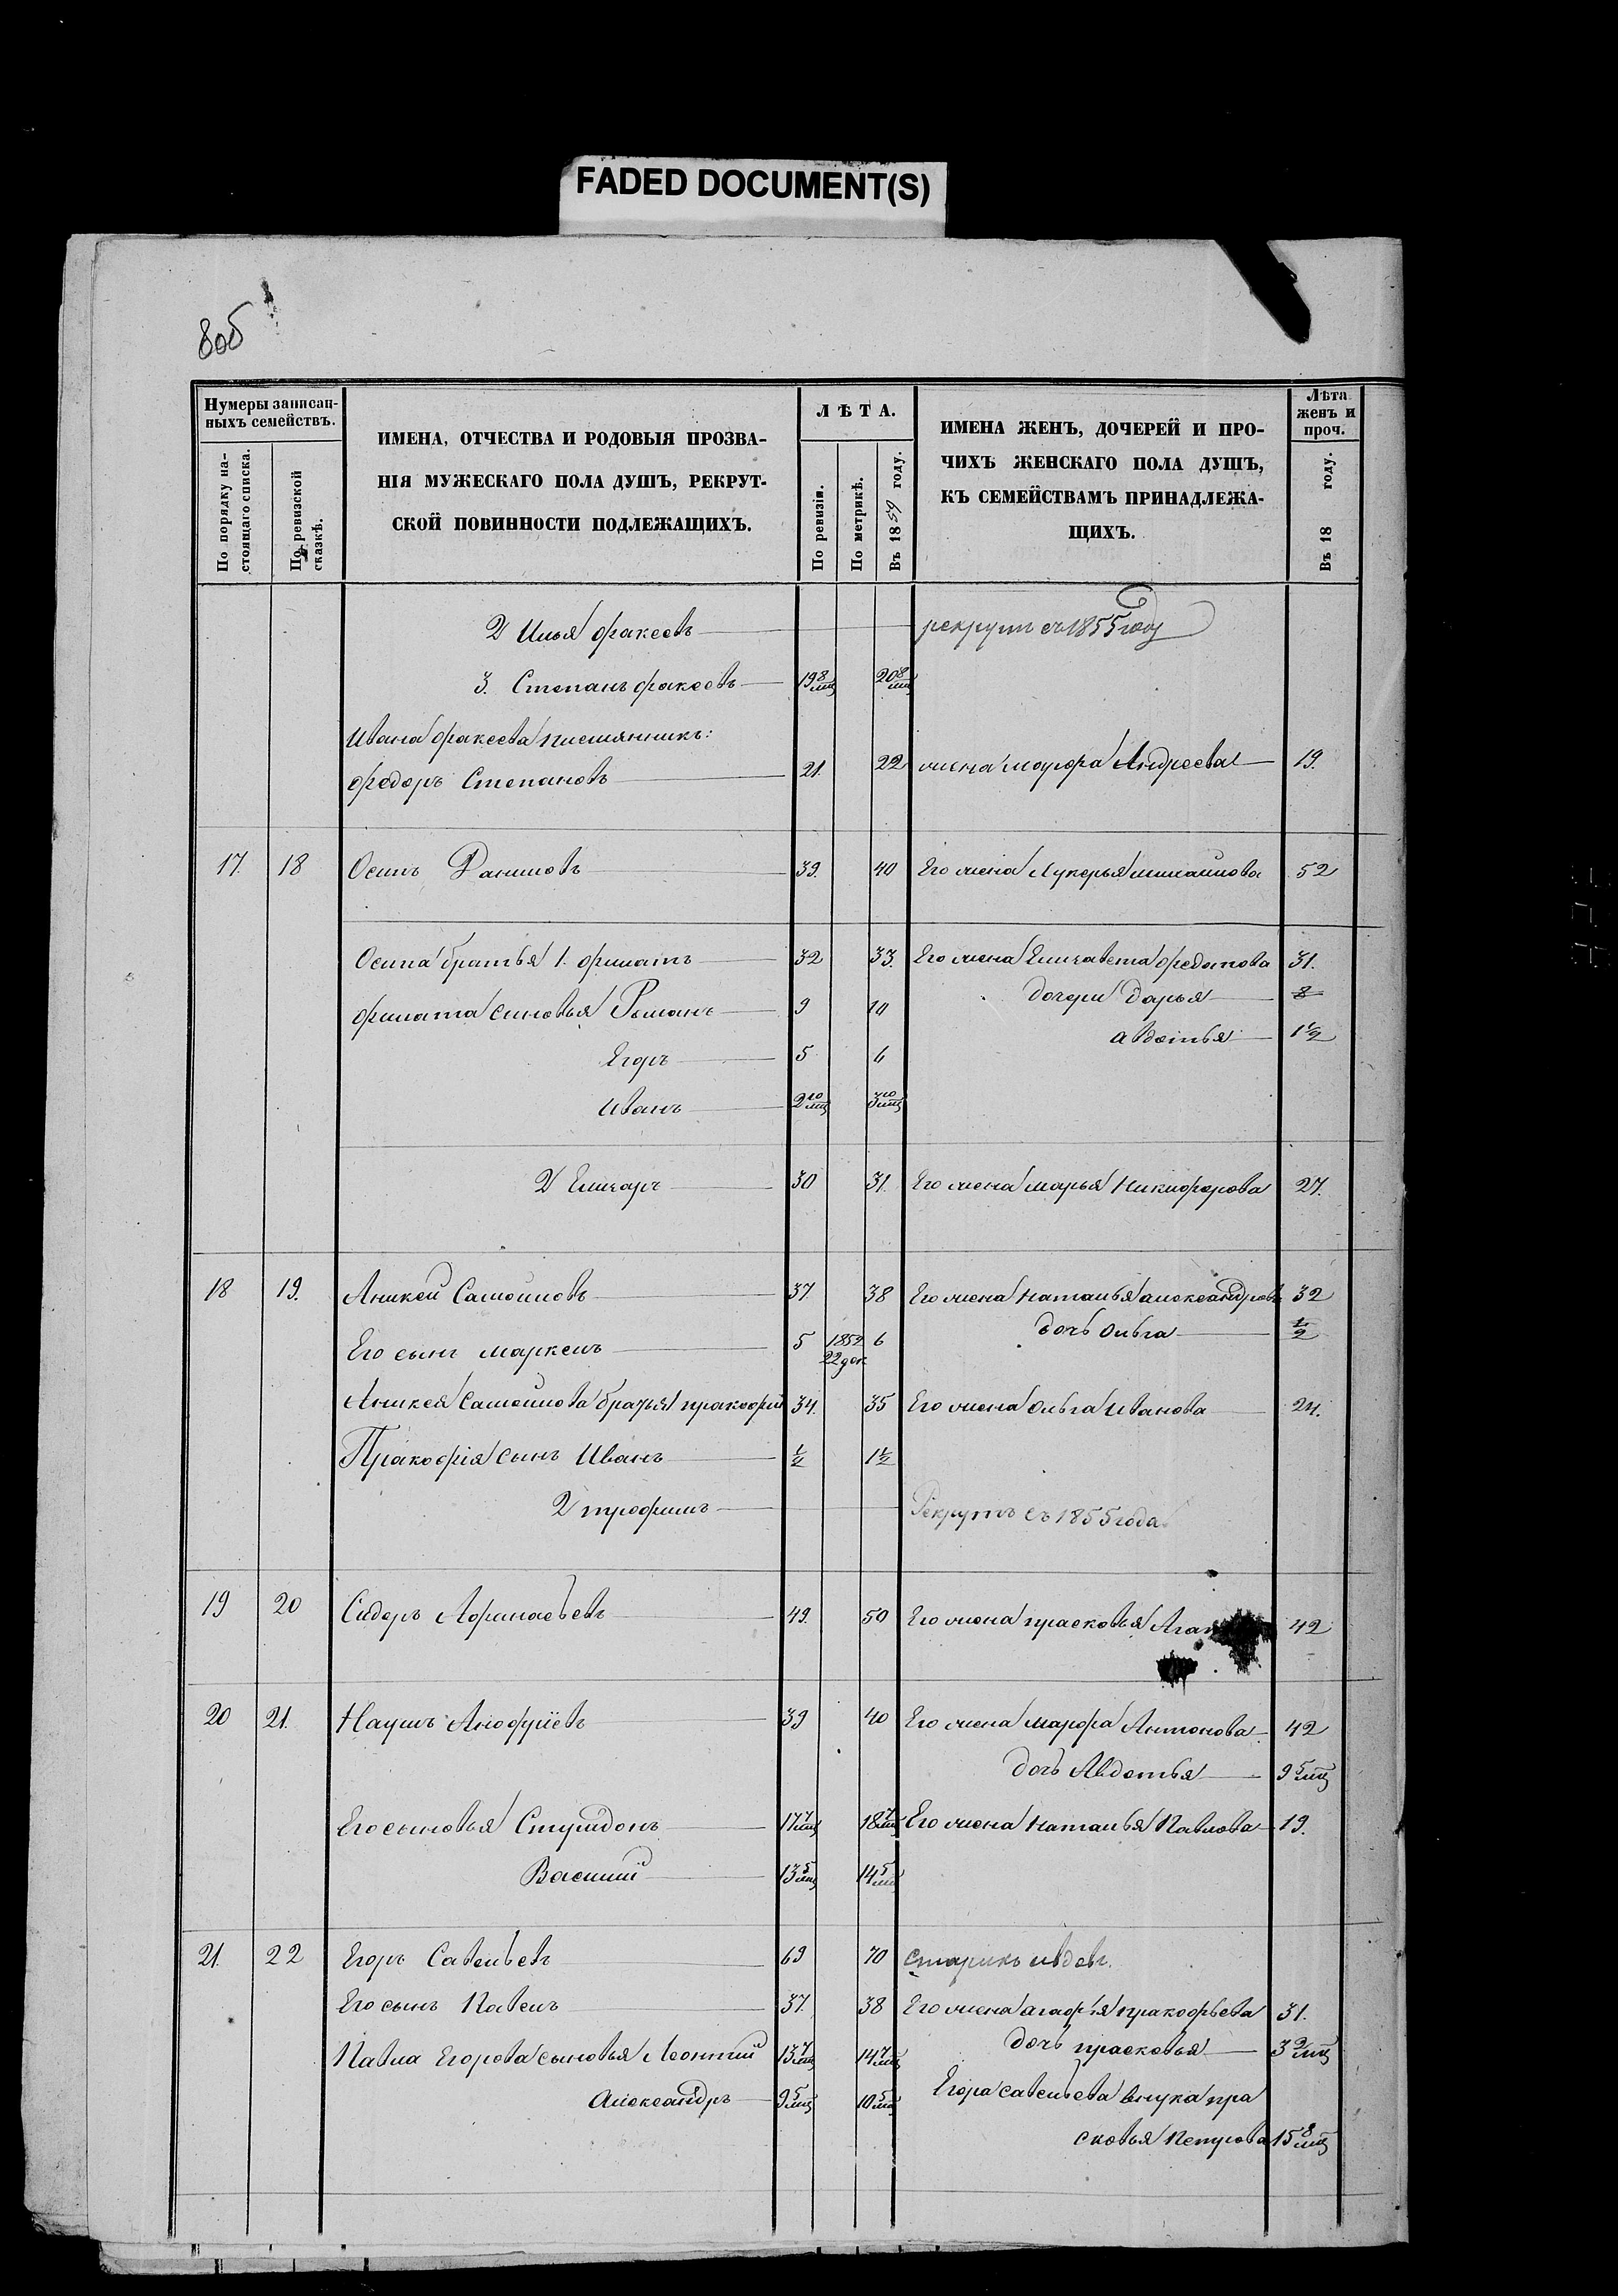 FADED DOCUMENT(S)
8об
Нумеры записан-
ныхъ семействъ.
По порядку на-
стоящаго списка.
По ревизской
сказкѣ.
ИМЕНА, ОТЧЕСТВА И РОДОВЫЯ ПРОЗВА-
НІЯ МУЖЕСКАГО ПОЛА ДУШЪ, РЕКРУТ-
СКОЙ ПОВИННОСТИ ПОДЛЕЖАЩИХЪ.
ЛѢТА.
По ревизіи.
По метрикѣ.
Въ 1859 году.
ИМЕНА ЖЕНЪ, ДОЧЕРЕЙ И ПРО-
ЧИХЪ ЖЕНСКАГО ПОЛА ДУШЪ,
КЪ СЕМЕЙСТВАМЪ ПРИНАДЛЕЖА-
ЩИХЪ.
Лѣта
женъ и
проч.
Въ 18 году.
2 Илья Факеевъ рекрутъ съ 1855 году
3. Степанъ Факеевъ 19 8/мц 20 8/мц
Ивана Факеева племянникъ:
Федоръ Степановъ 21. 22 жена Марфа Андреева 19.
17. 18 Осипъ Даниловъ 39. 40 Его жена Лукерья Михайлова 52
Осипа братья 1. Филатъ 32 33. Его жена Елизавета Федотова 31.
Филата сыновья Романъ 9 10 дочери Дарья 8
Авдотья 1 1/2
Егоръ 5 6
Иванъ 2 10/мц 3 10/мц
2 Елизаръ 30 31. Его жена Марья Никифорова 27.
18 19. Аникей Самойловъ 37 38 Его жена Наталья Александров 32
дочь Ольга 1/2
Его сынъ Маркелъ 5 1852 6
22 дек
Аникея Самойлова братья Пракофiй 34. 35 Его жена Ольга Иванова 24.
Пракофія сынъ Иванъ 1/2 1 1/2
2 Трофимъ Рекрутъ съ 1855 года
19 20 Сидоръ Афинасьевъ 49. 50 Его жена Прасковья 42
20 21. Наумъ Анофріевъ 39 40 Его жена Марфа Антонова 42
дочь Авдотья 9 5/мц
Его сыновья Спиридонъ 17 7/мц 18 7/мц Его жена Наталья Павлова 19.
Василий 13 5/мц 14 5/мц
21. 22 Егоръ Савельевъ 69 70 старикъ и вдовъ.
Его сынъ Павелъ 37. 38 Его жена Агафья Пракофьева 31.
Павла Егорова сыновья Леонтий 13 7/мц 14 7/мц дочь Прасковья 3 9/мц
Александръ 9 5/мц 10 5/мц Егора Савельева внука Пра
сковья Петрова 15 8/мц